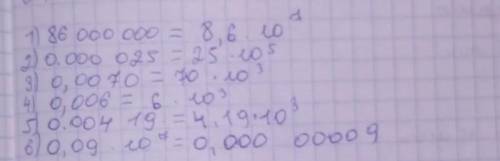 1) 86 000 000 = 8,6 · 10⁷
2) 0.000 025 = 25 · 10⁵
3) 0,0070 = 70 · 10³
4) 0,006 = 6 · 10³
5) 0.004 19 = 4,19·10³
6) 0,09 · 10⁷ = 0,000 00009